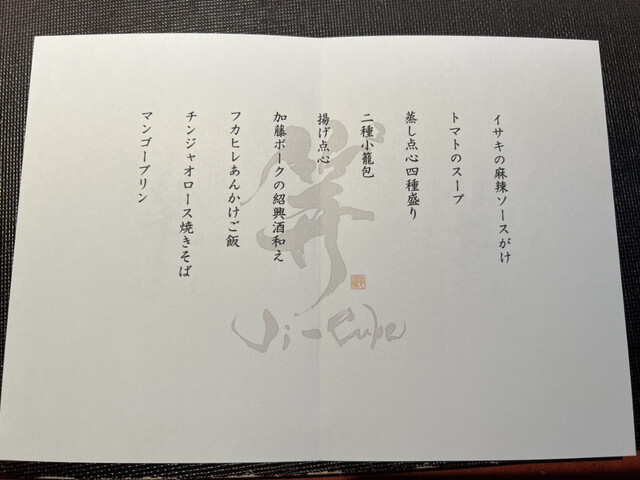 イサキの麻辣ソースがけ
トマトのスープ
蒸し点心四種盛り
二種小籠包
揚げ点心
加藤ポークの紹興酒和え
フカヒレあんかけご飯
チンジャオロース焼きそば
マンゴープリン
Ji-Cube